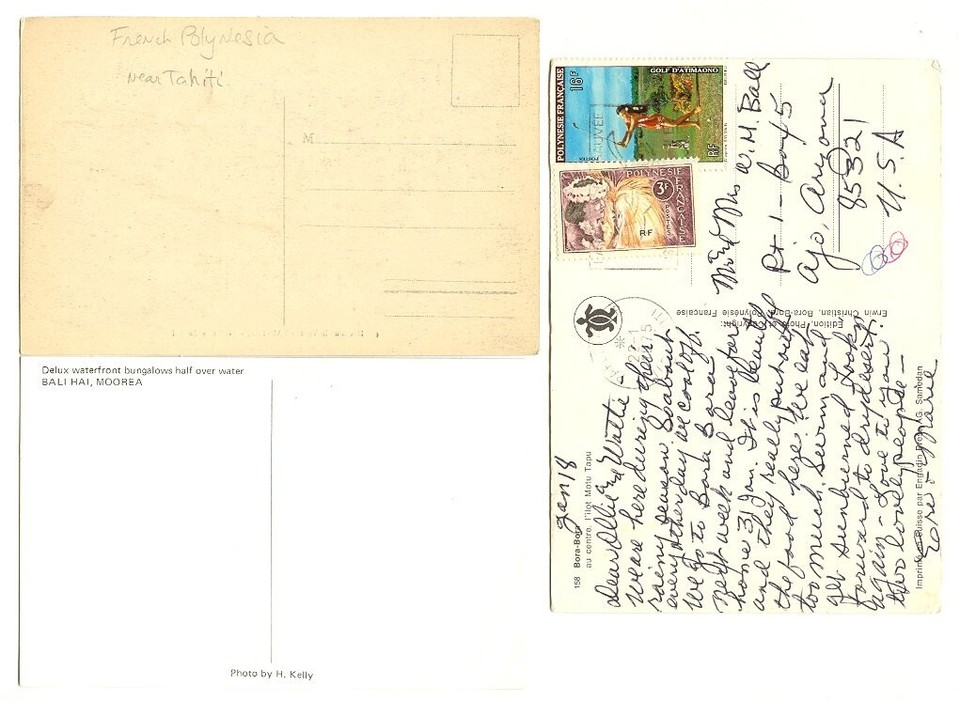 French Polynesia
near Tahiti
M
Delux waterfront bungalows half over water
BALI HAI, MOOREA
Photo by H. Kelly
POLYNESIE FRANÇAISE
16F
GOLF D'ATIMAONO
RF
POLYNESIE FRANÇAISE
3F
RF
Mr and Mrs W. M. Ball
Rt 1 - Box 45
Ajo, Aryona
85321
U.S.A
Edition, Photo et Copyright:
Erwin Christian, Bora-Bora, Polynésie Francaise
158 Bora-Bora
au centre, l'îlot Motu Tapu
Jan 18
Dear Ollie and Wattie -
We are here during their
rainy season. So about
every other day we cool off.
We go to Bora Bora
next week and leave for
home 31 Jan. It is beautiful
and they really put out
the food here. We eat
too much. Swim and
get sunburned. Look
forward to dry desert
again - Love to you
two lovely people -
Marie
Imprimé en Suisse par Engadin Press AG, Samedan